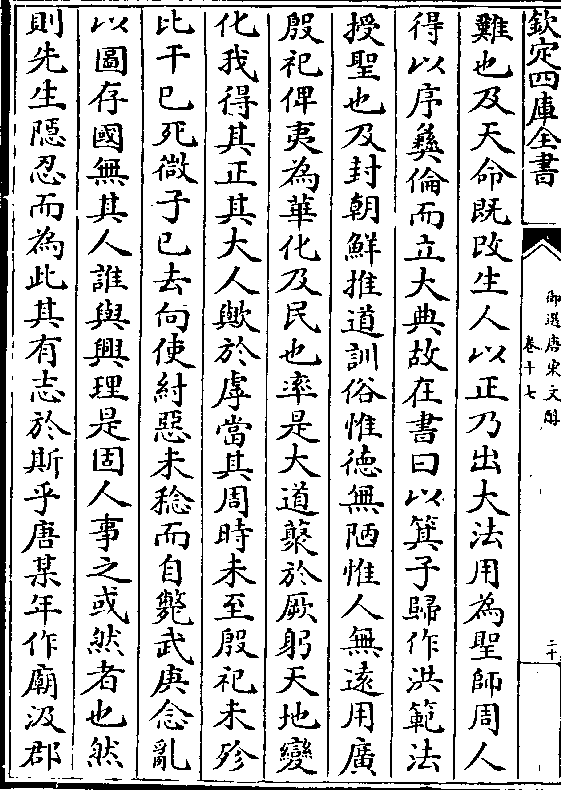 欽定四庫全書
御選唐宋文醇
卷十七
二十
難也及天命既改生人以正乃出大法用為聖師周人
得以序彝倫而立大典故在書曰以箕子歸作洪範法
授聖也及封朝鮮推道訓俗惟德無陋惟人無逺用廣
殷祀俾夷為華化及民也率是大道藂於厥躬天地變
化我得其正其大人歟於虖當其周時未至殷祀未殄
比干已死微子已去向使紂惡未稔而自斃武庚念亂
以圖存國無其人誰與興理是固人事之或然者也然
則先生隠忍而為此其有志於斯乎唐某年作廟汲郡